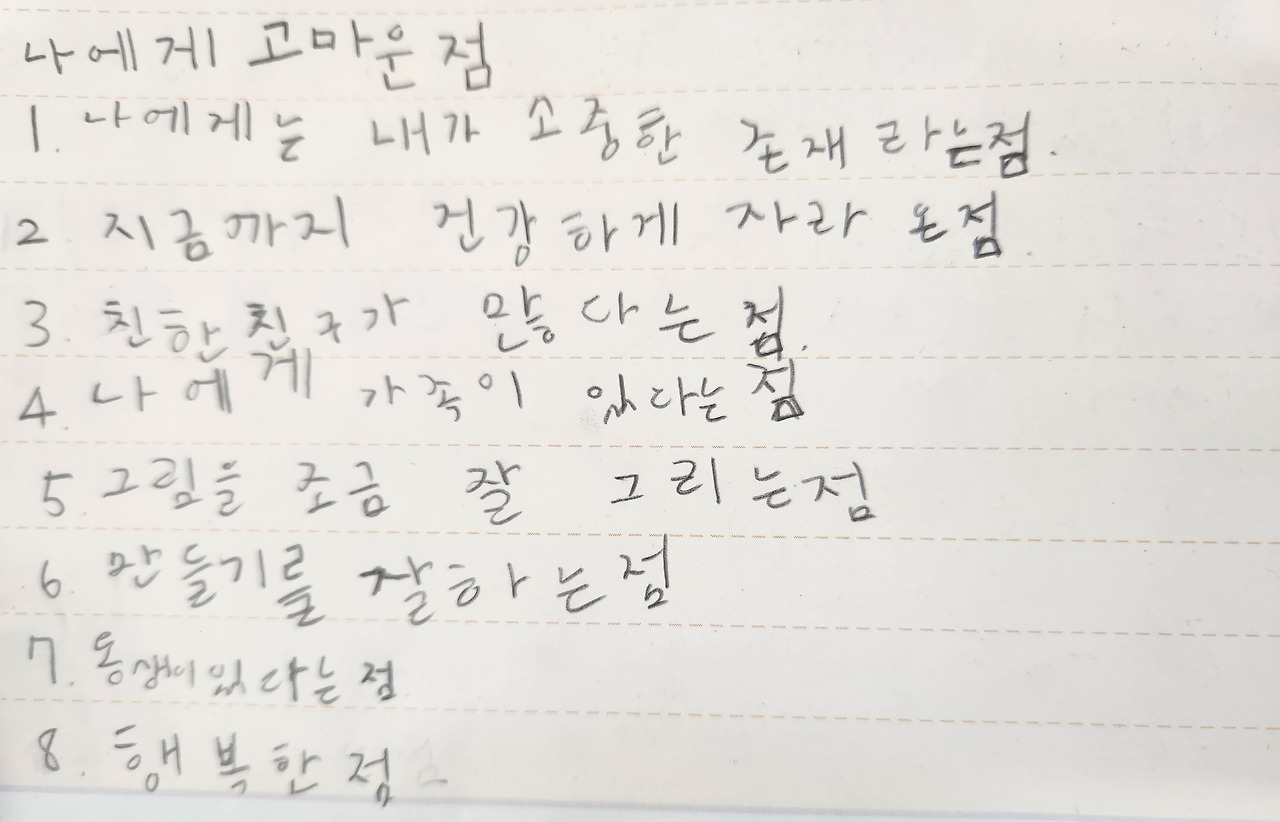 나에게 고마운 점
1. 나에게는 내가 소중한 존재 라는점.
2. 지금까지 건강하게 자라 온점.
3. 친한 친구가 많다는 점.
4. 나에게 가족이 있다는 점
5. 그림을 조금 잘 그리는점
6. 만들기를 잘하는점
7. 동생이있다는 점
8. 행복한점